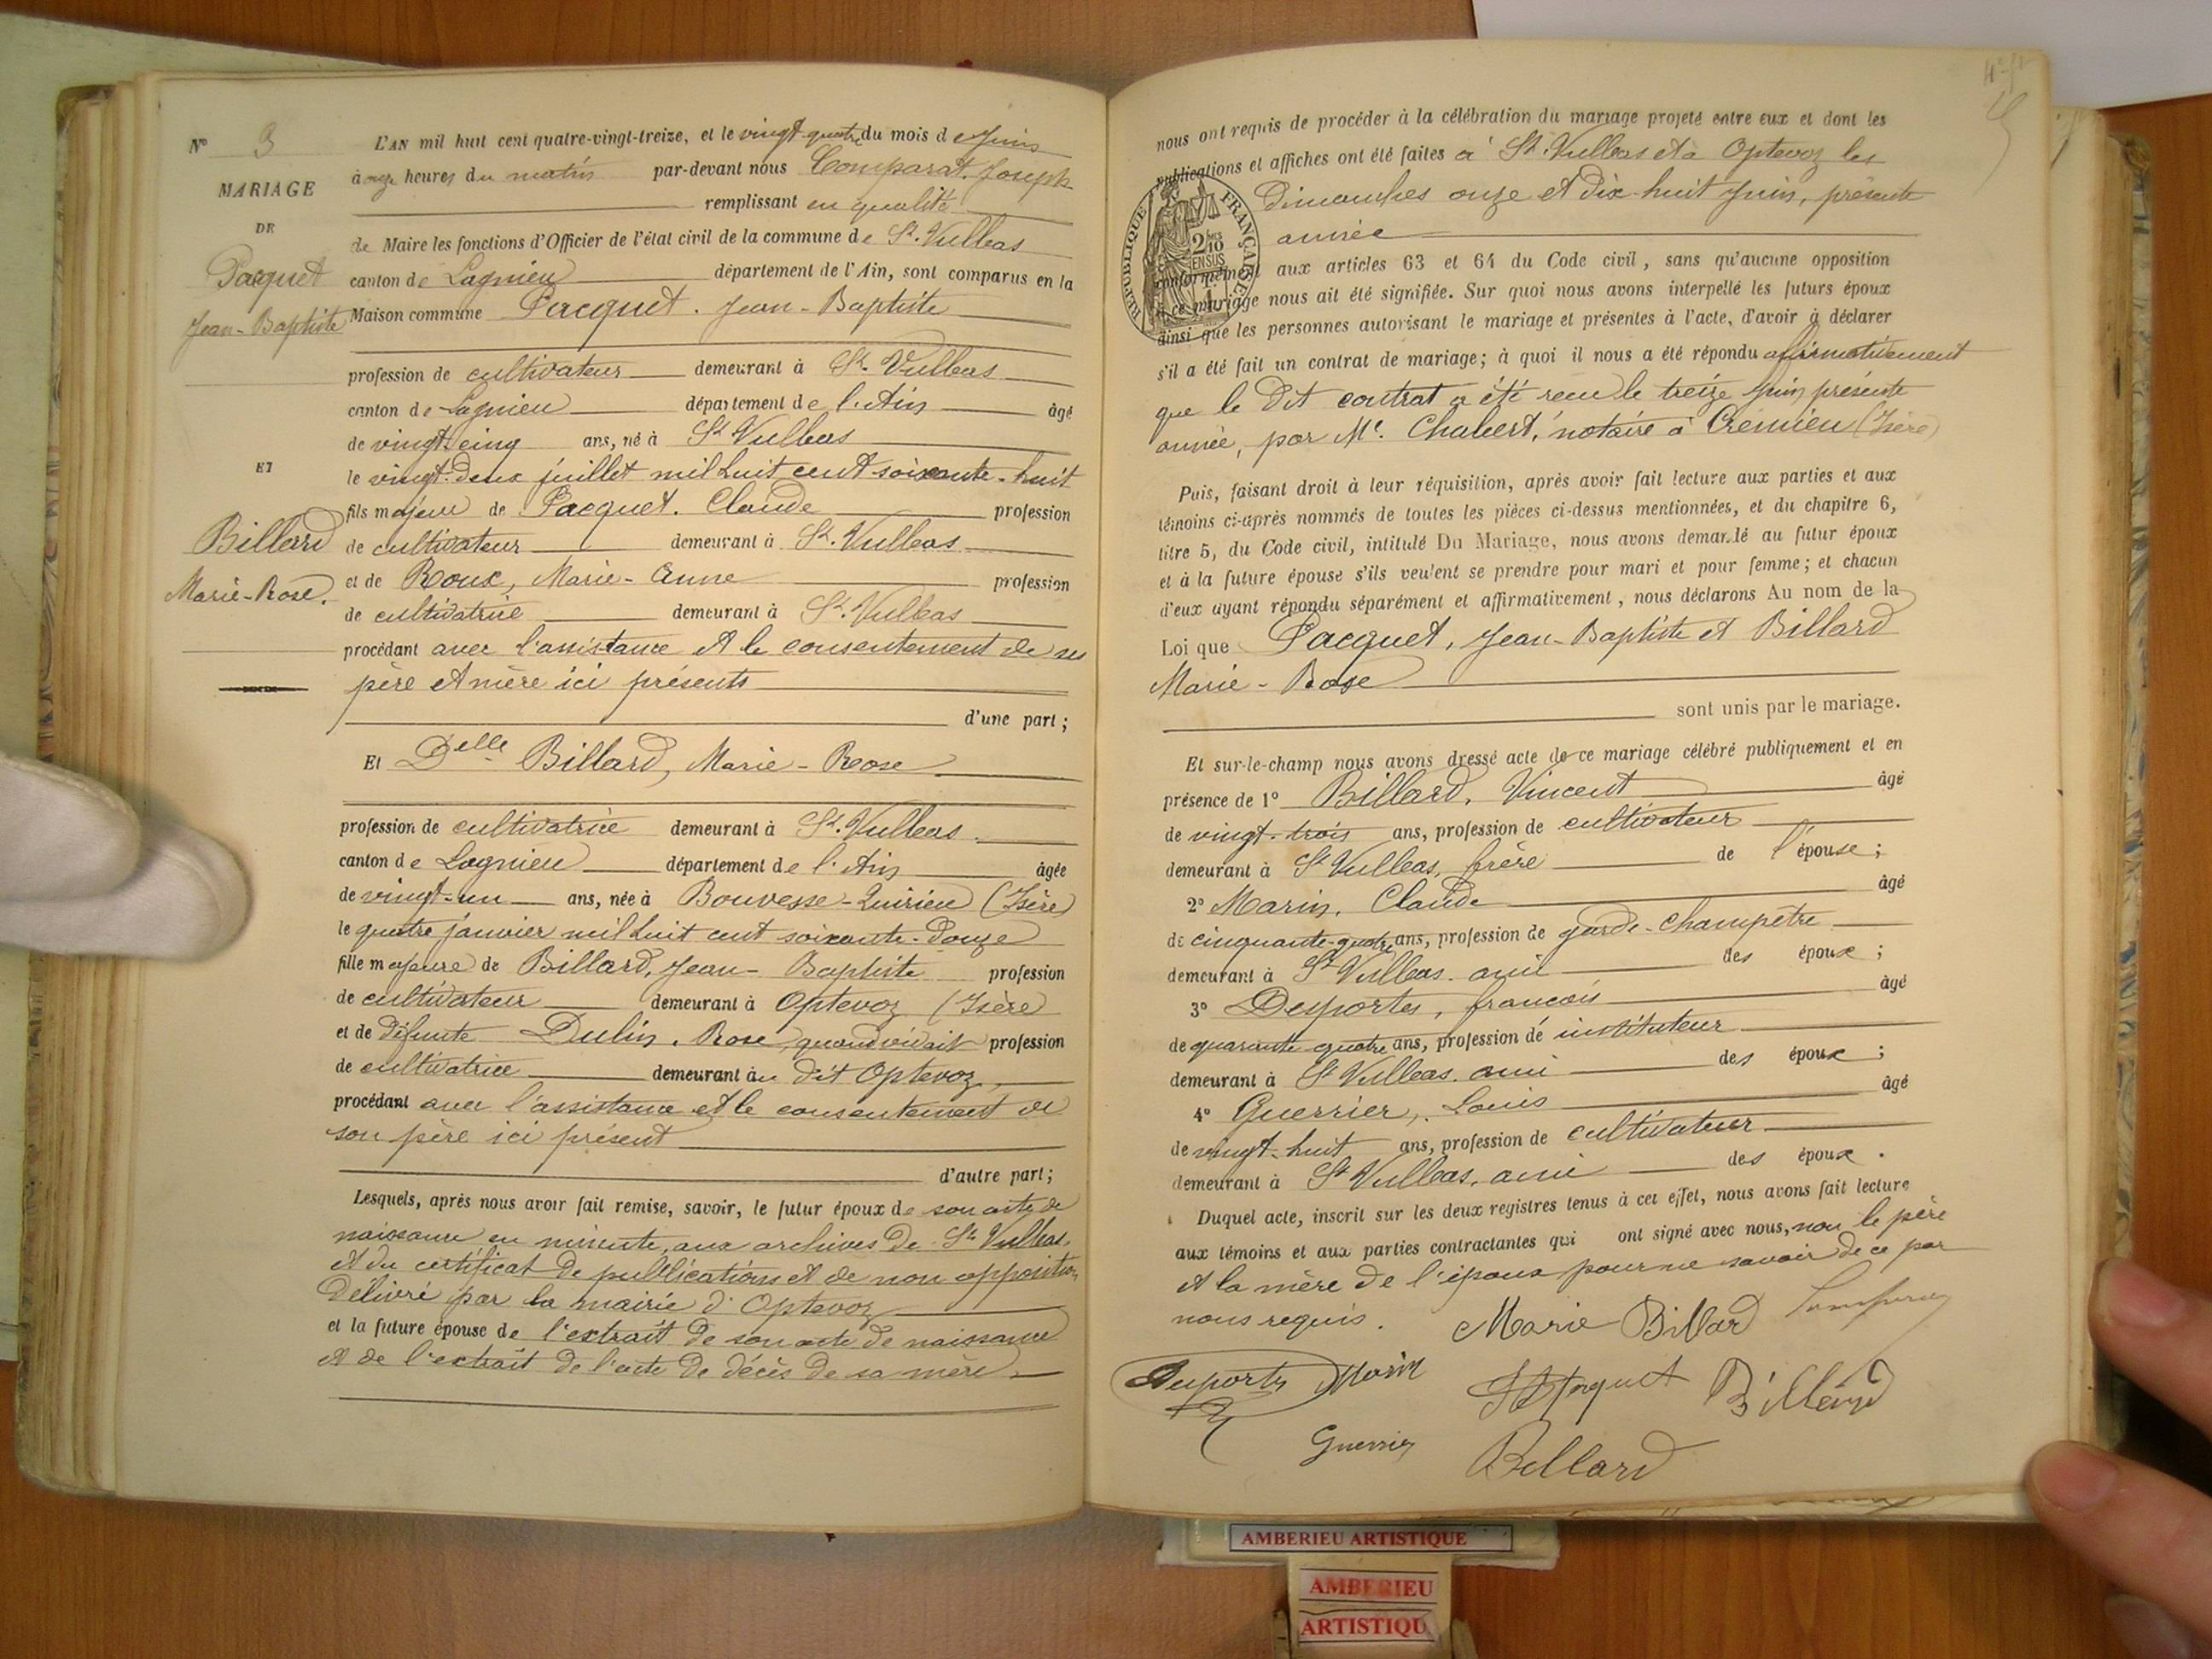 N° 3
MARIAGE
DE
Pacquet
Jean-Baptiste
ET
Billard
Marie-Rose.
L'AN mil huit cent quatre-vingt-treize, et le vingt-quatre du mois de Juin
à onze heures du matin par-devant nous Comparat. Joseph
remplissant en qualité
de Maire les fonctions d'Officier de l'état civil de la commune de St. Vulbas
canton de Lagnieu département de l'Ain, sont comparus en la
Maison commune Pacquet. Jean-Baptiste
profession de cultivateur demeurant à St. Vulbas
canton de Lagnieu département de l'Ain âgé
de vingt-cinq ans, né à St Vulbas
le vingt-deux juillet mil huit cent soixante-huit
fils majeur de Pacquet. Claude profession
de cultivateur demeurant à St. Vulbas
et de Roux, Marie-Anne profession
de cultivatrice demeurant à St. Vulbas
procédant avec l'assistance et le consentement de ses
père et mère ici présents
d'une part;
Et Delle Billard, Marie-Rose
profession de cultivatrice demeurant à St. Vulbas
canton de Lagnieu département de l'Ain âgée
de vingt-un ans, née à Bouvesse-Quirieu (Isère)
le quatre janvier mil huit cent soixante-douze
fille majeure de Billard, Jean-Baptiste profession
de cultivateur demeurant à Optevoz (Isère
et de défunte Dulin. Rose, quand vivait profession
de cultivatrice demeurant au dit Optevoz,
procédant avec l'assistance et le consentement de
son père ici présent
d'autre part;
Lesquels, après nous avoir fait remise, savoir, le futur époux de son acte de
naissance en minute, aux archives de St. Vulbas,
et du certificat de publications et de non opposition
délivré par la mairie d'Optevoz
et la future épouse de l'extrait de son acte de naissance
et de l'extrait de l'acte de décès de sa mère
nous ont requis de procéder à la célébration du mariage projeté entre eux et dont les
publications et affiches ont été faites à St. Vulbas et à Optevoz les
dimanches onze et dix-huit Juin, présente
année
RÉPUBLIQUE FRANÇAISE
2/10 EN SUS
conformément aux articles 63 et 64 du Code civil, sans qu'aucune opposition
à ce mariage nous ait été signifiée. Sur quoi nous avons interpellé les futurs époux
ainsi que les personnes autorisant le mariage et présentes à l'acte, d'avoir à déclarer
s'il a été fait un contrat de mariage; à quoi il nous a été répondu affirmativement
que le dit contrat a été reçu le treize juin présente
année, par Me. Chabert, notaire à Crémieu (Isère)
Puis, faisant droit à leur réquisition, après avoir fait lecture aux parties et aux
témoins ci-après nommés de toutes les pièces ci-dessus mentionnées, et du chapitre 6,
titre 5, du Code civil, intitulé Du Mariage, nous avons demandé au futur époux
et à la future épouse s'ils veulent se prendre pour mari et pour femme; et chacun
d'eux ayant répondu séparément et affirmativement, nous déclarons Au nom de la
Loi que Pacquet, Jean-Baptiste et Billard
Marie-Rose
sont unis par le mariage.
Et sur-le-champ nous avons dressé acte de ce mariage célébré publiquement et en
présence de 1° Billard, Vincent âgé
de vingt-trois ans, profession de cultivateur
demeurant à St Vulbas, frère de l'épouse;
2° Marin, Claude âgé
de cinquante-quatre ans, profession de garde-champêtre
demeurant à St Vulbas. ami des époux;
3° Desportes, françois âgé
de quarante-quatre ans, profession de instituteur
demeurant à St Vulbas. ami des époux;
4° Guerrier, Louis âgé
de vingt-huit ans, profession de cultivateur
demeurant à St Vulbas, ami des époux.
Duquel acte, inscrit sur les deux registres tenus à cet effet, nous avons fait lecture
aux témoins et aux parties contractantes qui ont signé avec nous, non le père
et la mère de l'époux pour ne savoir de ce par
nous requis.
Marie Billard
Desportes Marin Billard
Guerrier Billard
AMBERIEU ARTISTIQUE
AMBERIEU
ARTISTIQU